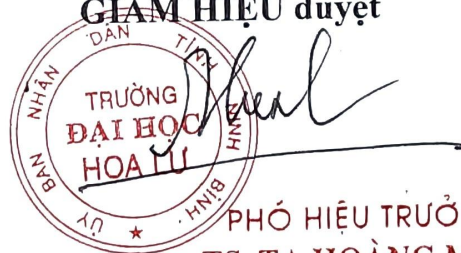 GIÁM HIỆU duyệt
ỦY BAN NHÂN DÂN TỈNH NINH BÌNH
TRƯỜNG
ĐẠI HỌC
HOA LƯ
PHÓ HIỆU TRƯỞ